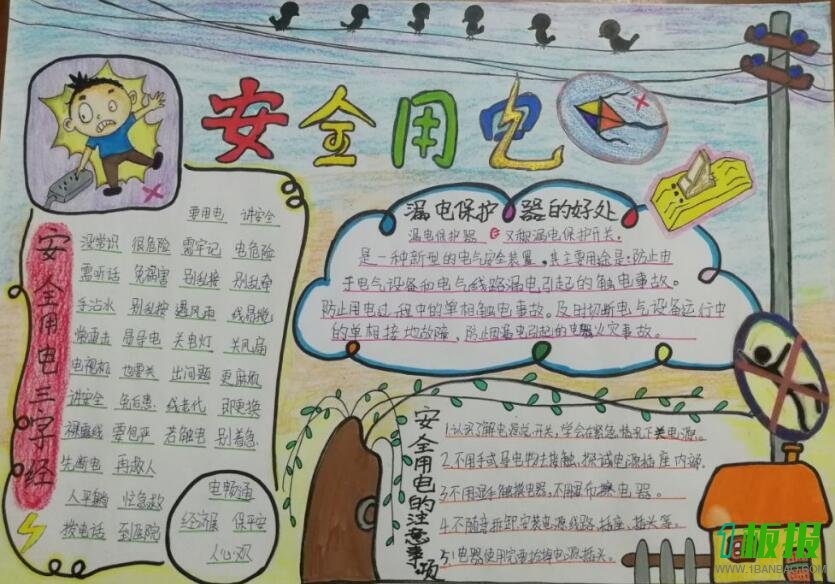 安全用电
安全用电三字经
要用电 讲安全
没常识 很危险 需牢记 电危险
需听话 免祸害 别乱接 别乱牵
手沾水 别乱按 遇风雨 线易搅
常雷击 易导电 关电灯 关风扇
电视机 也要关 出问题 更麻烦
讲安全 免后患 线老代 即更换
裸露线 要包严 若触电 别着急
先断电 再救人
人平躺 忙急救
拨电话 到医院
电畅通
经济强 保平安
人心欢
漏电保护器的好处
漏电保护器 又称漏电保护开关.
是一种新型的电气安全装置。其主要用途是:防止由
于电气设备和电气线路漏电引起的触电事故。
防止用电过程中的单相触电事故。及时切断电气设备运行中
的单相接地故障,防止因漏电引起的电器火灾事故。
安全用电的注意事项
1.认识了解电源总开关,学会在紧急情况下关电源。
2.不用手或导电物去接触、探试电源插座内部.
3.不用湿手触摸电器,不用湿布擦电器。
4.不随意拆卸、安装电源线路、插座、插头等。
5.电器使用完要拔掉电源插头.
1板报
WWW.1BANBAO.COM